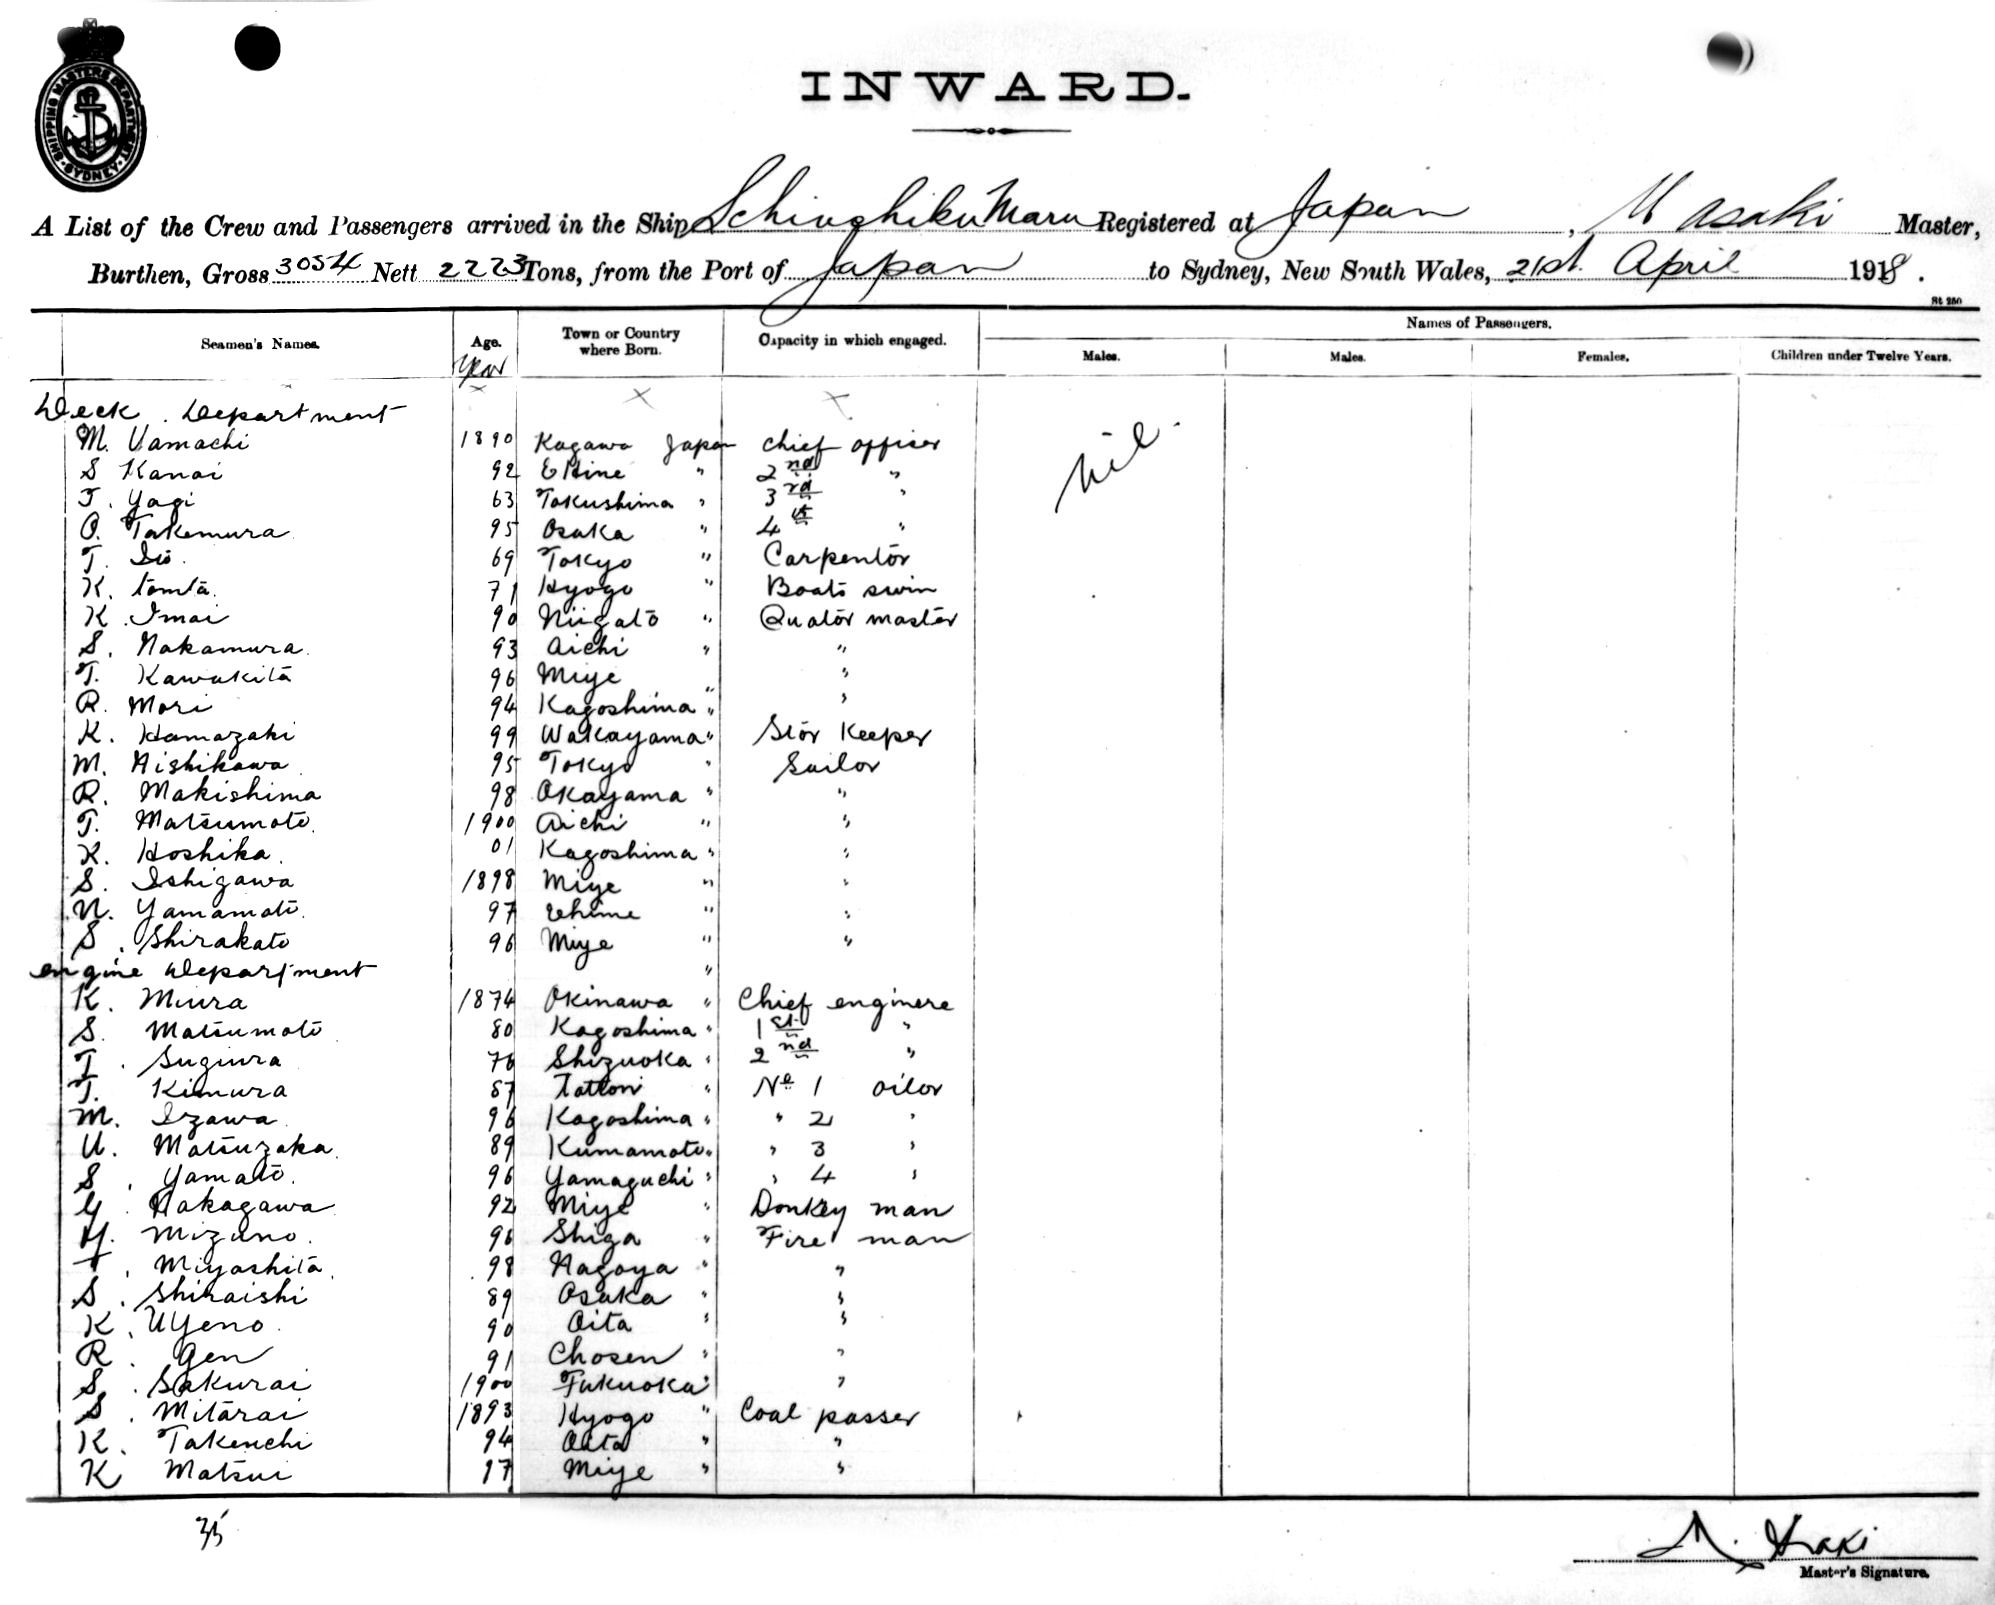 SHIPPING MASTERS DEPARTMENT · SYDNEY ·
INWARD.
A List of the Crew and Passengers arrived in the Ship Schinchiku Maru Registered at Japan, M Asaki Master,
Burthen, Gross 3054 Nett 2223 Tons, from the Port of Japan to Sydney, New South Wales, 21st. April 1918.
St 250
Seamen's Names. Age. Town or Country where Born. Capacity in which engaged. Names of Passengers.
Year Males. Males. Females. Children under Twelve Years.
Deck Department
M. Uamachi 1890 Kagawa Japan Chief officer
S Kanai 92 EHine " 2nd "
T. Yagi 63 Tokushima " 3rd "
O. Takemura 95 Osaka " 4th "
T. Ito. 69 Tokyo " Carpentor
K. tomta. 71 Hyogo " Boats swin
K. Imai 90 Niigato " Quator master
S. Nakamura. 93 Aichi " "
T. Kawakita 96 Miye " "
R. Mori 94 Kagoshima " "
K. Hamazaki 99 Wakayama " Stor Keeper
M. Nishikawa 95 Tokyo " Sailor
R. Makishima 98 Okayama " "
T. Matsumoto. 1900 Aichi " "
K. Hoshika. 01 Kagoshima " "
S. Ishigawa 1898 Miye " "
N. Yamamoto. 97 Ehime " "
S. Shirakato 96 Miye " "
engine Department "
K. Miura 1874 Okinawa " Chief enginere
S. Matsumoto 80 Kagoshima " 1st "
T. Sugiura 76 Shizuoka " 2nd "
T. Kimura 87 Tattori " No 1 oilor
M. Izawa 96 Kagoshima " " 2 "
U. Matsuzaka. 89 Kumamoto " " 3 "
S. Yamato. 96 Yamaguchi " " 4 "
Y. Nakagawa 92 Miye " Donkey man
H. Mizuno. 96 Shiga " Fire man
T. Miyashita. 98 Nagoya " "
S. Shiraishi 89 Osaka " "
K. Uyeno. 90 Oita " "
R. Gen 91 Chosen " "
S. Sakurai 1900 Fukuoka " "
S. Mitarai 1893 Hyogo " Coal passer
K. Takeuchi 94 Oita " "
K Matsui 97 Miye " "
nil.
35
M. Asaki
Master's Signature.